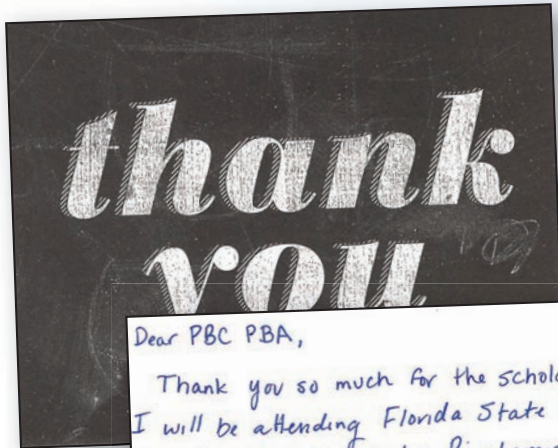 thank
you
Dear PBC PBA,
Thank you so much for the
I will be attending Florida State